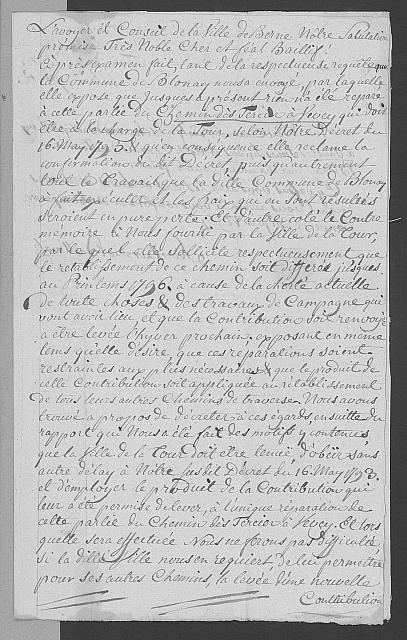 L'avoyer et Conseil de la Ville de Berne Notre Salutation
prémise Très Noble Cher et féal Baillif!
Après examen fait, tant de la respectueuse requête que
la Commune de Blonay nous a envoyé, par laquelle
elle expose que jusques à présent rien n'a été réparé
à cette partie du Chemin dès Tercier à Vevey qui doit
être à la charge de la Tour, selon Notre Décret du
16 May 1793. & qu'en conséquence elle réclame la
confirmation du dit Décret, puis qu'autrement
tout le Travail que la ditte Commune de Blonay
a fait exécuter et les fraix qui en sont résultés
seroient en pure perte. Et d'autre coté le Contre
mémoire à Nous fournit par la Ville de la Tour,
par le quel elle sollicite respectueusement que
le rétablissement de ce chemin soit différé jusques
au Printems 1796. à cause de la cherté actuelle
de toute choses & des travaux de Campagne qui
vont avoir lieu et que la Contribution soit renvoyé
a être levée l'hyver prochain; exposant en même
tems qu'elle désire, que ces réparations soient
restraintes aux plus nécessaires & que le produit de
celle Contribution soit appliquée au rétablissement
de tous leurs autres Chemins de traverse. Nous avons
trouvé a propos de décréter à ces égards, ensuitte du
rapport qui Nous a été fait des motifs y contenus,
que la Ville de la Tour doit être tenue d'obéir sans
autre délay à Nôtre susdit Décret du 16 May 1793.
et d'employer le produit de la Contribution qui
leur a été permise de lever, à l'unique réparation de
cette partie du Chemin dès Tercier à Vevey. Et lors
quelle sera effectuée Nous ne ferons pas difficulté
si la ditte Ville nous en requiert, de lui permettre
pour ses autres Chemins, la levée d'une nouvelle
Contribution